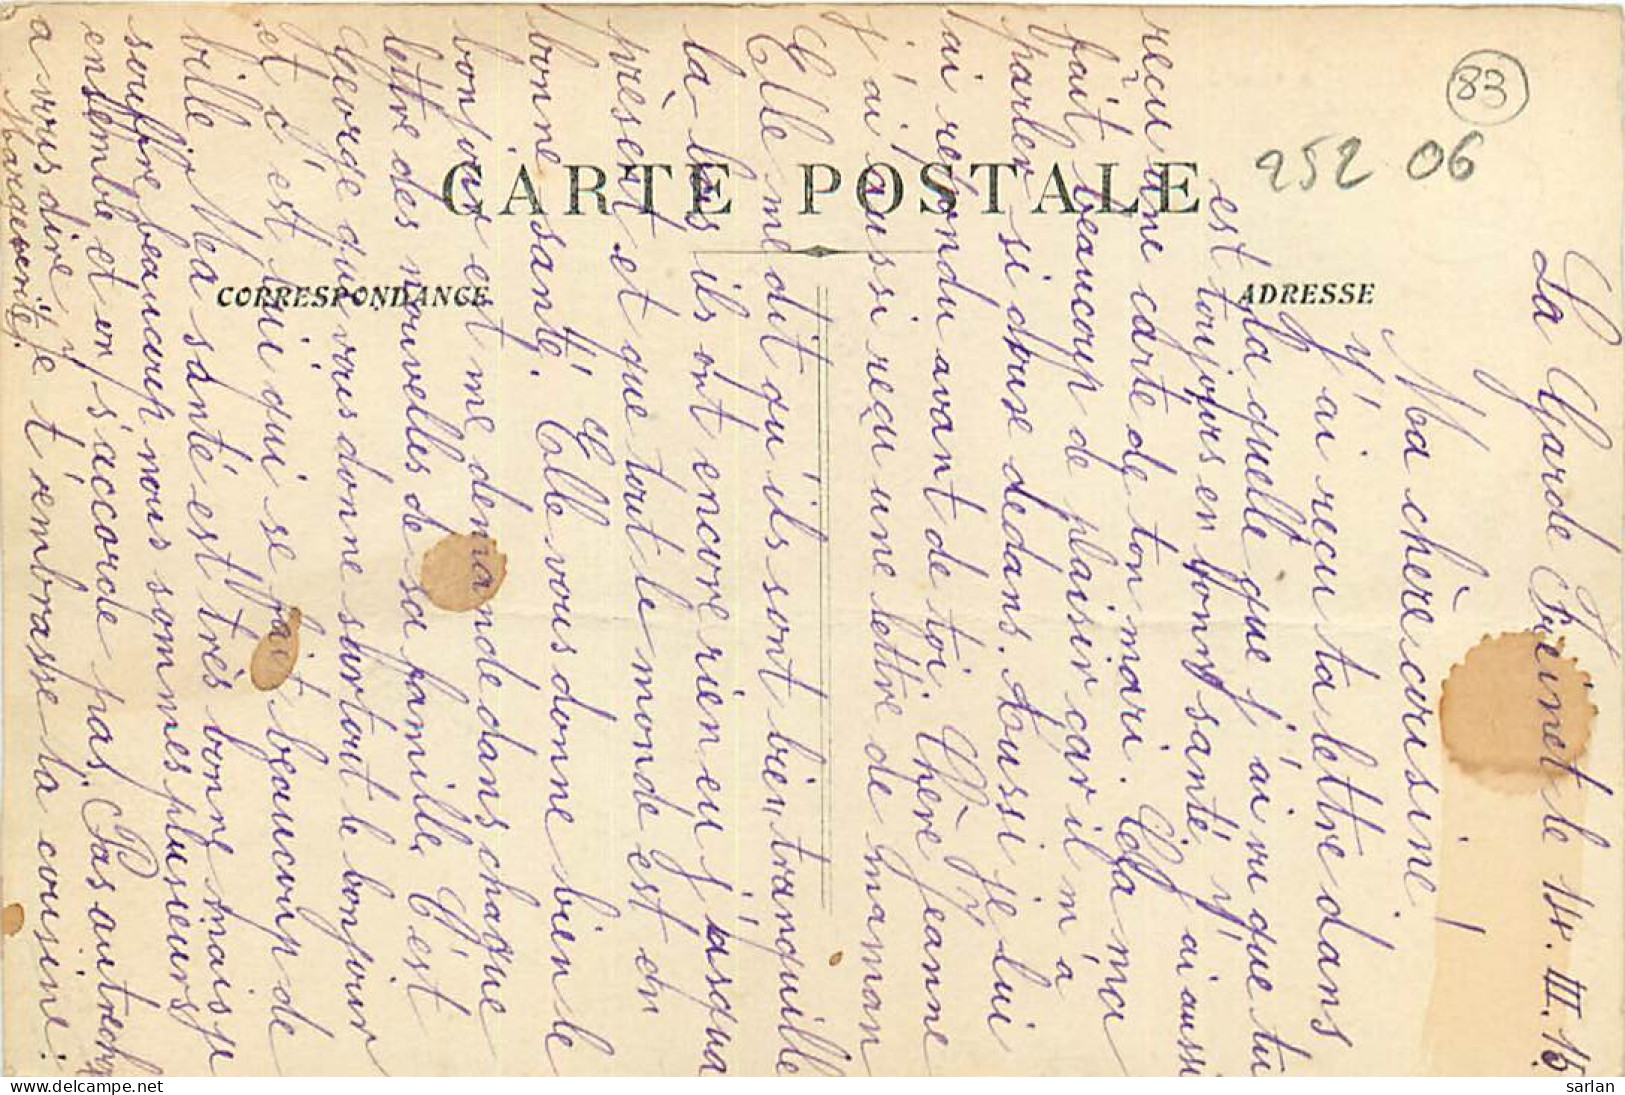 83
252 06
CARTE POSTALE
CORRESPONDANCE
ADRESSE
La Garde Freinet le 14. III. 15
Ma chère cousine.
J'ai reçu ta lettre dans
la quelle que j'ai vu que tu
est toujours en bonne santé. J'ai aussi
reçu une carte de ton mari. Cela ma
fait beaucoup de plaisir car il m'a
parler si douse dedans. Aussi je lui
ai repondu avant de toi. Chère Jeanne
j'ai aussi reçu une lettre de maman
Elle me dit qu'ils sont bien tranquille
là bas ils ont encore rien eu jusqua
présent et que tout le monde est en
bonne santé. Elle vous donne bien le
bonjour et me demande dans chaque
lettre des nouvelles de sa famille. C'est
George que vous donne surtout le bonjour
et c'est lui qui se fait beaucoup de
bille. Ma santé est très bonne mais je
souffre beaucoup nous sommes plusieurs
ensemble et on s'accorde pas. Pas autrechose
a vous dire je t'embrasse ta cousine.
Marguerite.
Sarlan